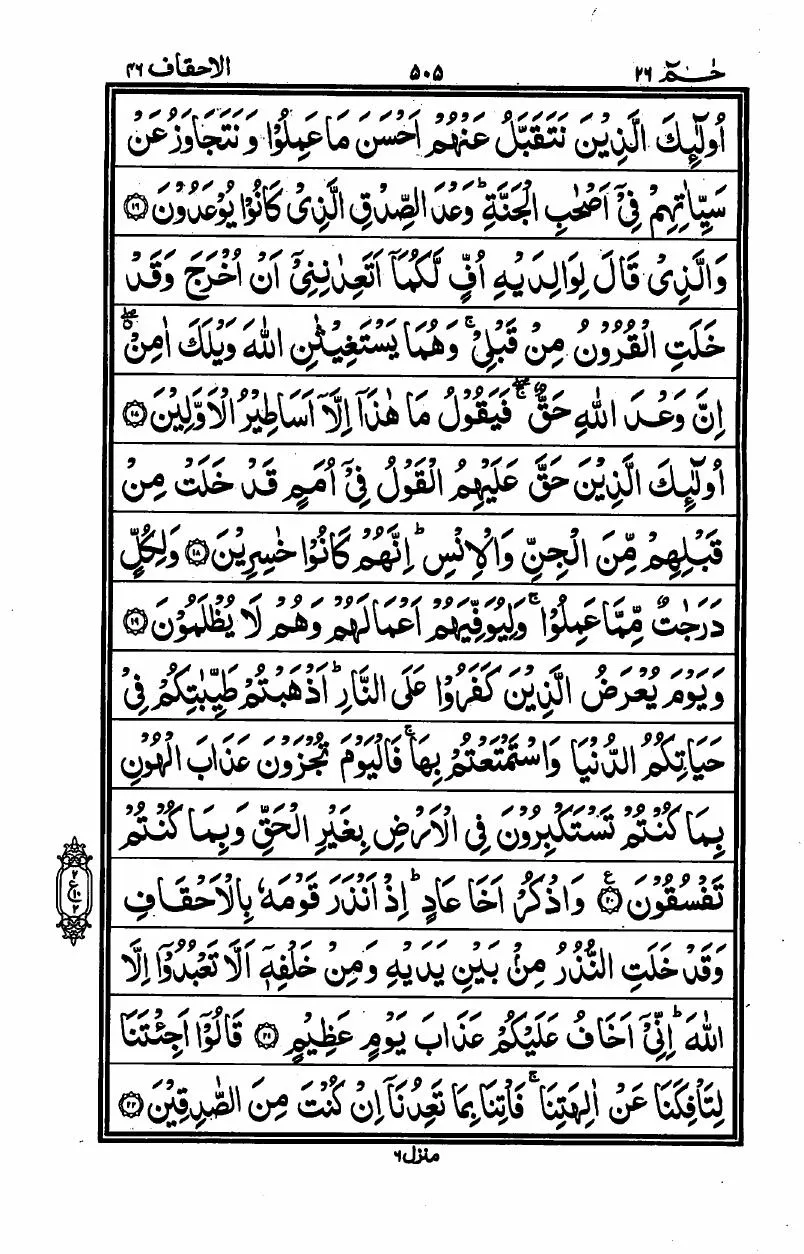 حٰـمٓ ٢٦ ٥٠٥ الاحقاف ٤٦
اُولٰٓئِكَ الَّذِيْنَ نَتَقَبَّلُ عَنْهُمْ اَحْسَنَ مَا عَمِلُوْا وَ نَتَجَاوَزُ عَنْ
سَيِّاٰتِهِمْ فِيْۤ اَصْحٰبِ الْجَنَّةِ ؕ وَعْدَ الصِّدْقِ الَّذِيْ كَانُوْا يُوْعَدُوْنَ ۝١٦
وَالَّذِيْ قَالَ لِوَالِدَيْهِ اُفٍّ لَّكُمَاۤ اَتَعِدٰنِنِيْۤ اَنْ اُخْرَجَ وَقَدْ
خَلَتِ الْقُرُوْنُ مِنْ قَبْلِيْ ۚ وَهُمَا يَسْتَغِيْثٰنِ اللّٰهَ وَيْلَكَ اٰمِنْ ۖ
اِنَّ وَعْدَ اللّٰهِ حَقٌّ ۖۚ فَيَقُوْلُ مَا هٰذَاۤ اِلَّاۤ اَسَاطِيْرُ الْاَوَّلِيْنَ ۝١٧
اُولٰٓئِكَ الَّذِيْنَ حَقَّ عَلَيْهِمُ الْقَوْلُ فِيْۤ اُمَمٍ قَدْ خَلَتْ مِنْ
قَبْلِهِمْ مِّنَ الْجِنِّ وَالْاِنْسِ ؕ اِنَّهُمْ كَانُوْا خٰسِرِيْنَ ۝١٨ وَلِكُلٍّ
دَرَجٰتٌ مِّمَّا عَمِلُوْا ۚ وَلِيُوَفِّيَهُمْ اَعْمَالَهُمْ وَهُمْ لَا يُظْلَمُوْنَ ۝١٩
وَيَوْمَ يُعْرَضُ الَّذِيْنَ كَفَرُوْا عَلَى النَّارِ ؕ اَذْهَبْتُمْ طَيِّبٰتِكُمْ فِيْ
حَيَاتِكُمُ الدُّنْيَا وَاسْتَمْتَعْتُمْ بِهَا ۚ فَالْيَوْمَ تُجْزَوْنَ عَذَابَ الْهُوْنِ
بِمَا كُنْتُمْ تَسْتَكْبِرُوْنَ فِي الْاَرْضِ بِغَيْرِ الْحَقِّ وَبِمَا كُنْتُمْ
تَفْسُقُوْنَ ۝٢٠ ع وَاذْكُرْ اَخَا عَادٍ ؕ اِذْ اَنْذَرَ قَوْمَهٗ بِالْاَحْقَافِ
٢ ع ١٠ ٢
وَقَدْ خَلَتِ النُّذُرُ مِنْۢ بَيْنِ يَدَيْهِ وَمِنْ خَلْفِهٖۤ اَلَّا تَعْبُدُوْۤا اِلَّا
اللّٰهَ ؕ اِنِّيْۤ اَخَافُ عَلَيْكُمْ عَذَابَ يَوْمٍ عَظِيْمٍ ۝٢١ قَالُوْۤا اَجِئْتَنَا
لِتَاْفِكَنَا عَنْ اٰلِهَتِنَا ۚ فَاْتِنَا بِمَا تَعِدُنَاۤ اِنْ كُنْتَ مِنَ الصّٰدِقِيْنَ ۝٢٢
منزل ٦